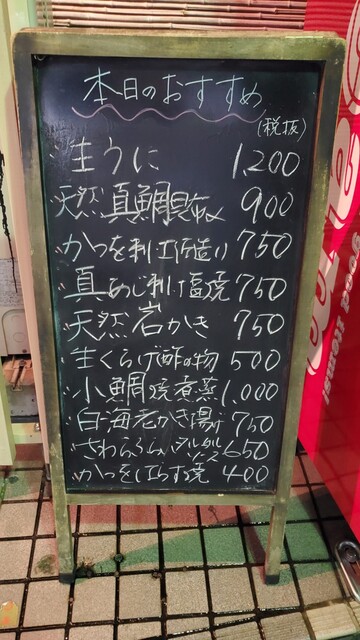 本日のおすすめ
(税抜)
生うに 1,200
天然真鯛 900
かつを 750
真あじ 塩焼 750
天然岩かき 750
生くらげ酢の物 500
小鯛 焼煮蒸 1,000
白海老かき揚げ 750
さわら タルタルソース 650
かつをはらす焼 400